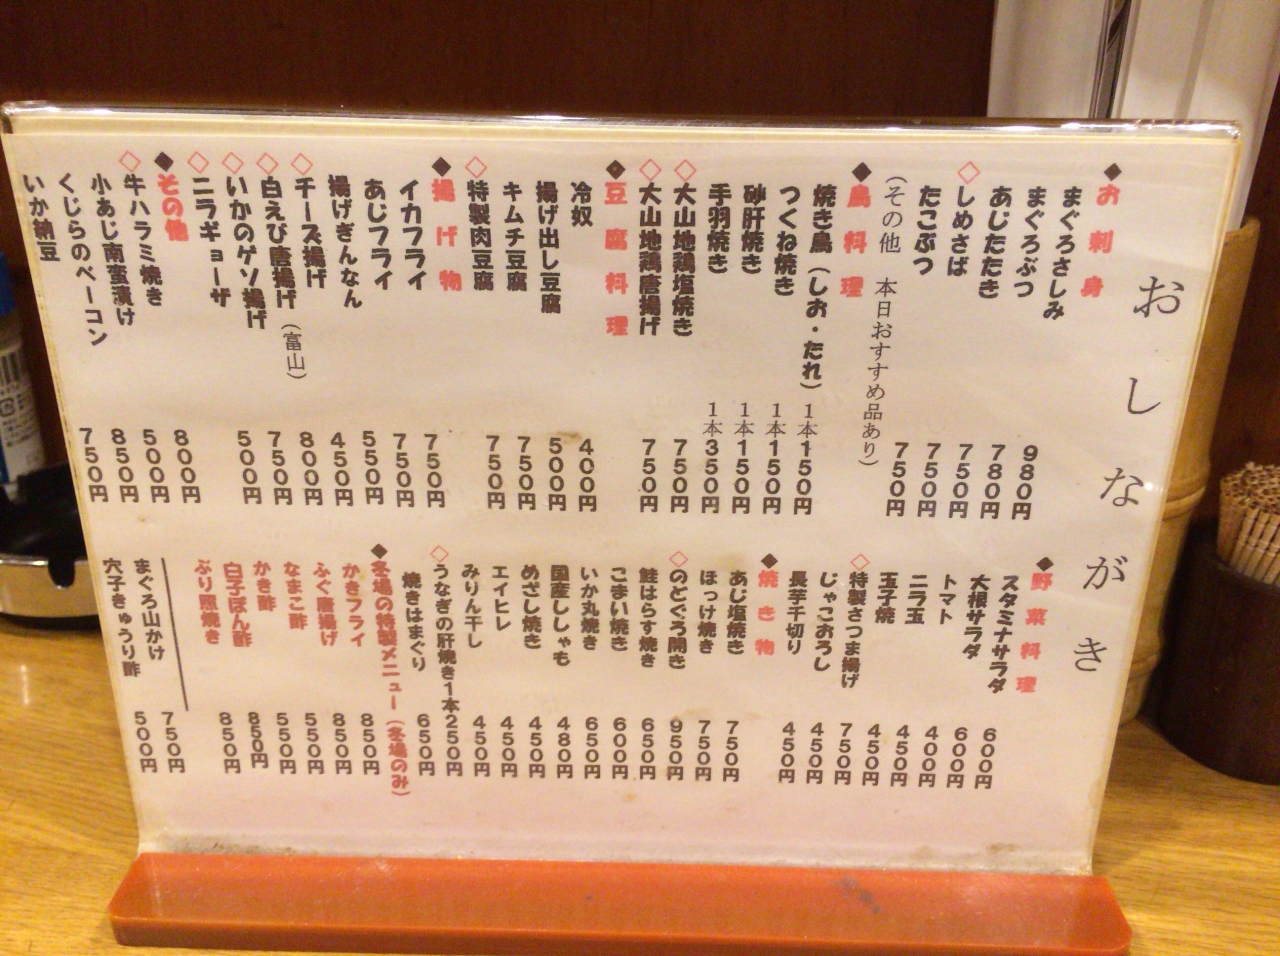 おしながき
◆お刺身
まぐろさしみ 980円
まぐろぶつ 780円
あじたたき 750円
◇しめさば 750円
たこぶつ 750円
(その他 本日おすすめ品あり)
◆鳥料理
焼き鳥(しお・たれ) 1本150円
つくね焼き 1本150円
砂肝焼き 1本150円
手羽焼き 1本350円
◇大山地鶏塩焼き 750円
◇大山地鶏唐揚げ 750円
◆豆腐料理
冷奴 400円
揚げ出し豆腐 500円
キムチ豆腐 750円
◇特製肉豆腐 750円
◆揚げ物
イカフライ 750円
あじフライ 750円
揚げぎんなん 550円
◇チーズ揚げ 450円
◇白えび唐揚げ(富山) 800円
◇いかのゲソ揚げ 750円
◇ニラギョーザ 500円
◆その他
◇牛ハラミ焼き 800円
小あじ南蛮漬け 500円
くじらのベーコン 850円
いか納豆 750円
◆野菜料理
スタミナサラダ 600円
大根サラダ 600円
トマト 400円
ニラ玉 450円
玉子焼 450円
◇特製さつま揚げ 750円
じゃこおろし 450円
長芋千切り 450円
◆焼き物
あじ塩焼き 750円
ほっけ焼き 750円
◇のどぐろ開き 950円
鮭はらす焼き 650円
こまい焼き 600円
いか丸焼き 650円
国産ししゃも 480円
めざし焼き 450円
エイヒレ 450円
みりん干し 450円
◇うなぎの肝焼き1本250円
焼きはまぐり 650円
◆冬場の特製メニュー(冬場のみ)
かきフライ 850円
ふぐ唐揚げ 850円
なまこ酢 550円
かき酢 550円
白子ぽん酢 850円
ぶり照焼き 850円
まぐろ山かけ 750円
穴子きゅうり酢 500円